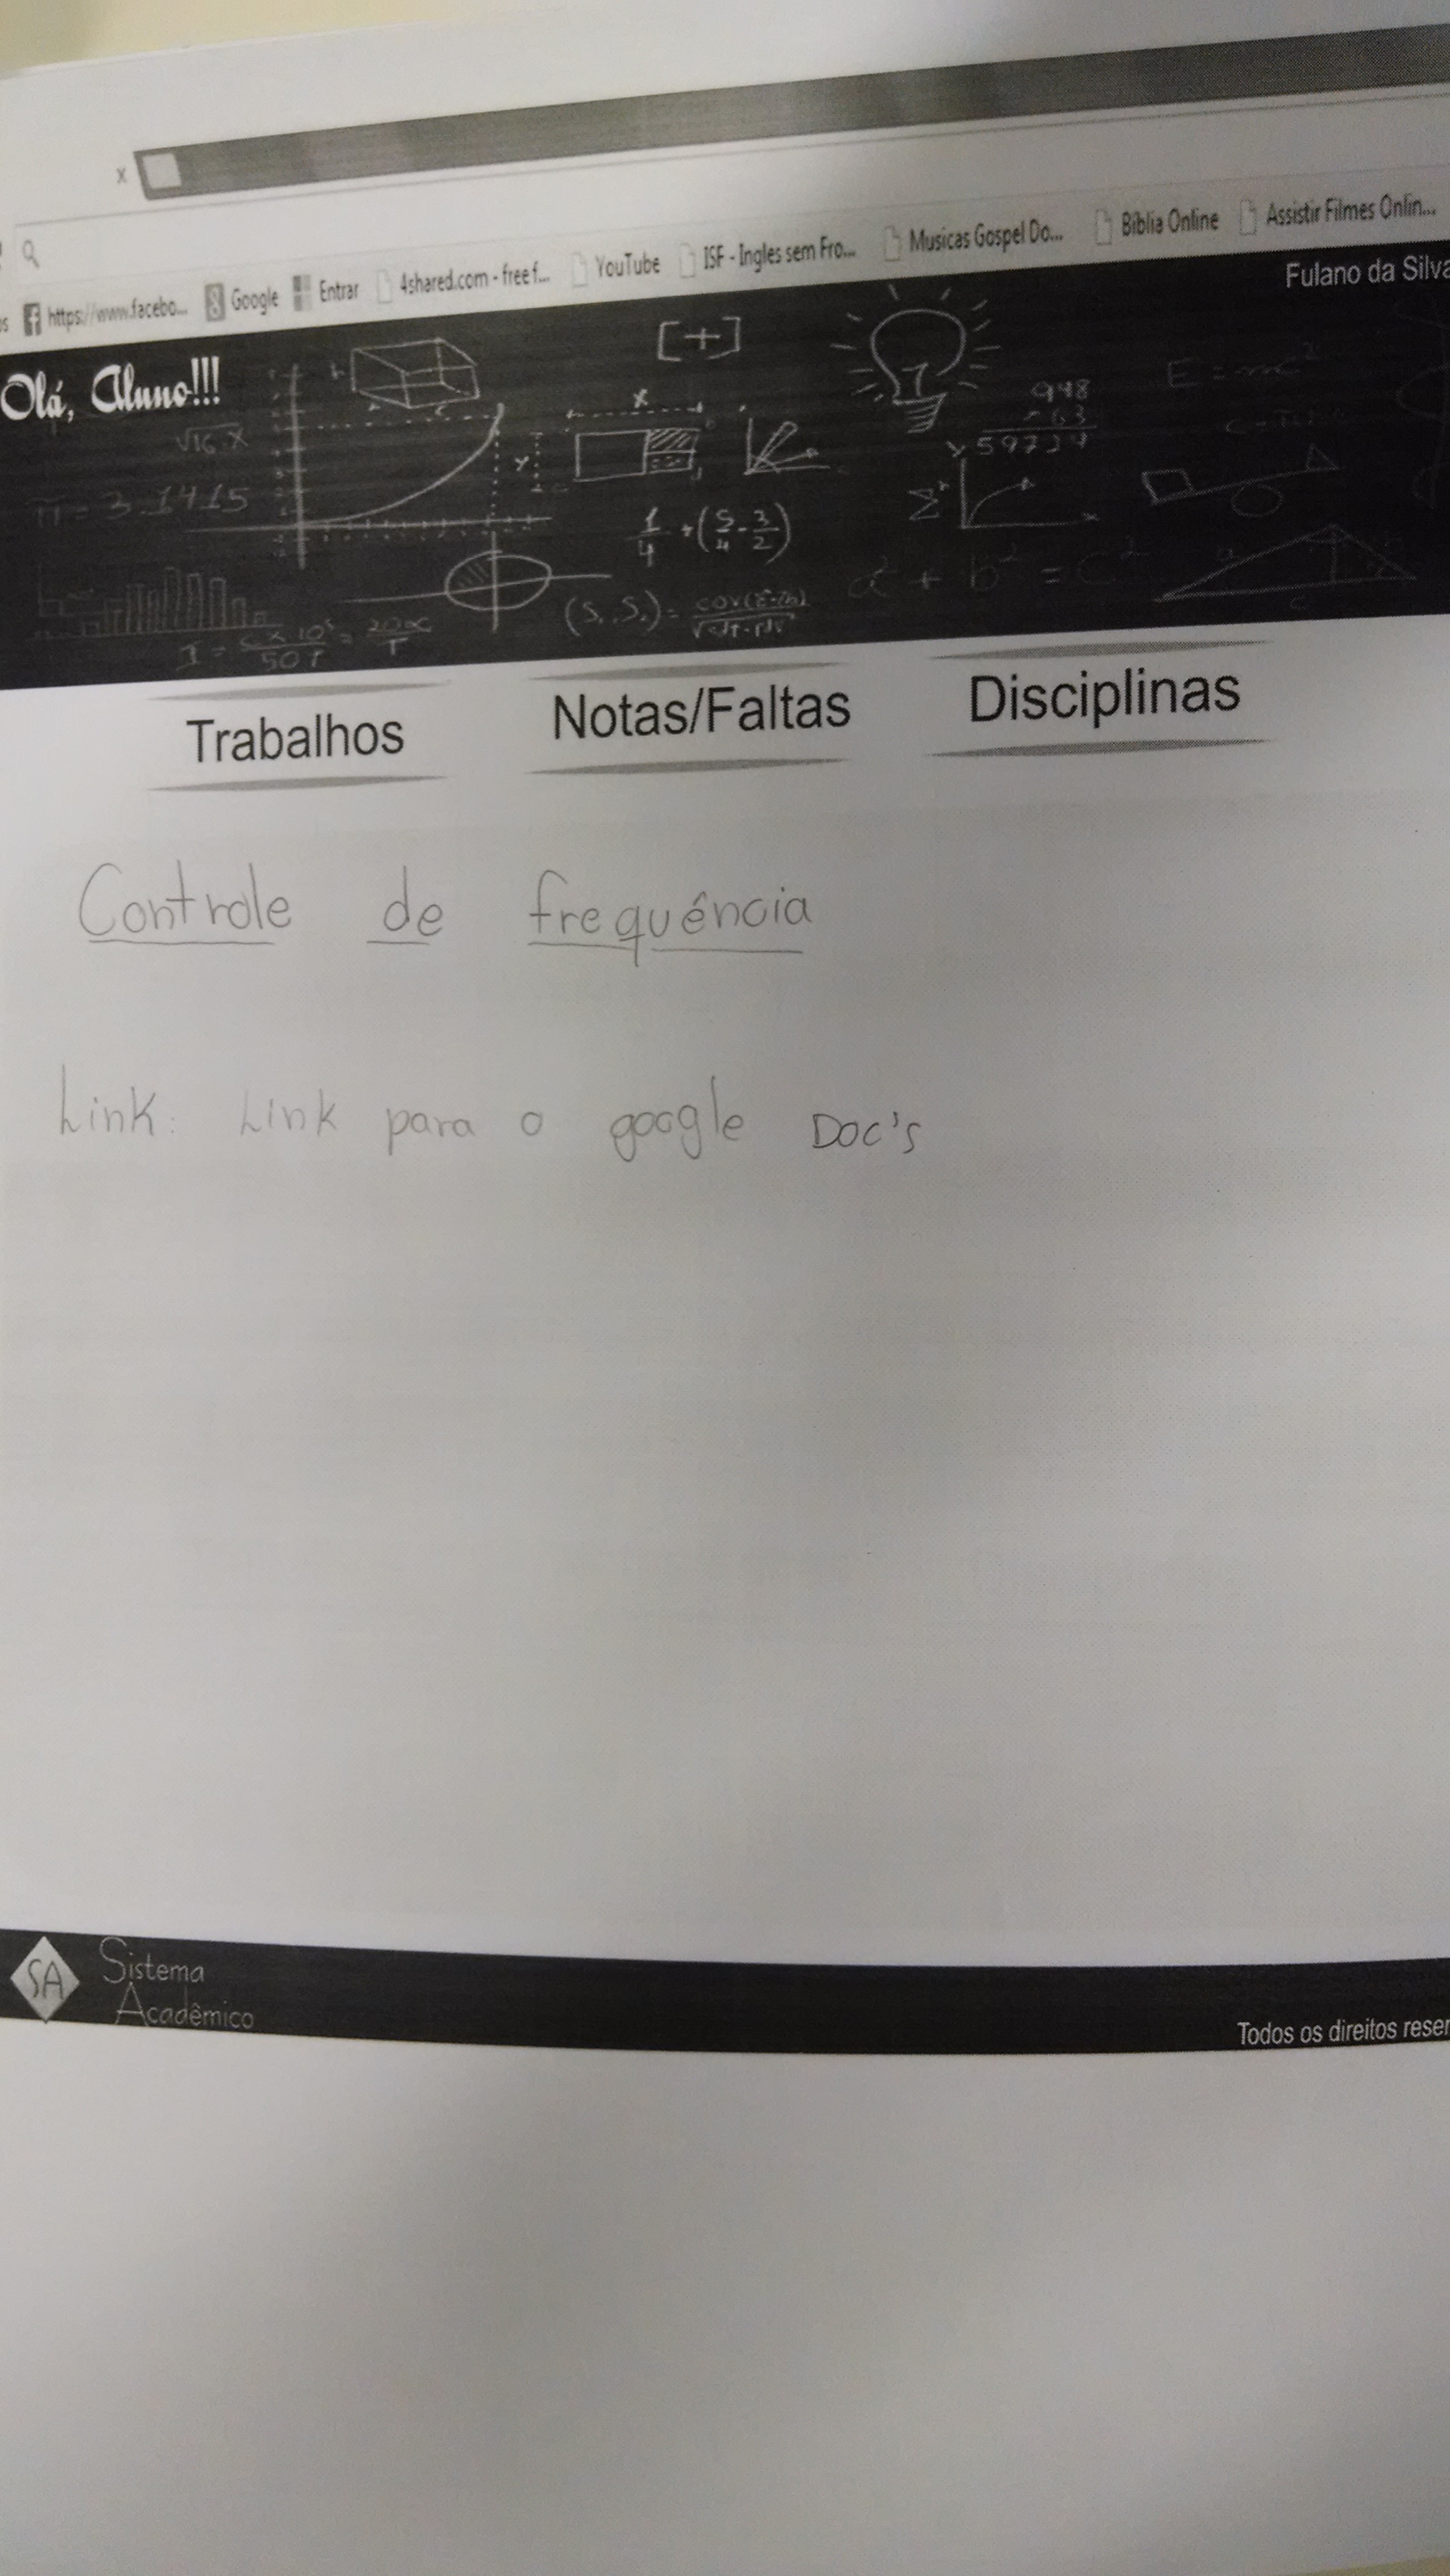 x
https://www.facebo... Google Entrar 4shared.com - free f... YouTube ISF - Ingles sem Fro... Musicas Gospel Do... Bíblia Online Assistir Filmes Onlin...
Fulano da Silva
Olá, Aluno!!!
[+]
√16.X
π = 3.1415
x
y
948
63
59724
E = mc²
1/4 + (5/4 - 3/2)
Σ
a² + b² = c²
Trabalhos Notas/Faltas Disciplinas
Controle de frequência
Link: Link para o google Doc's
SA Sistema
Acadêmico
Todos os direitos reser